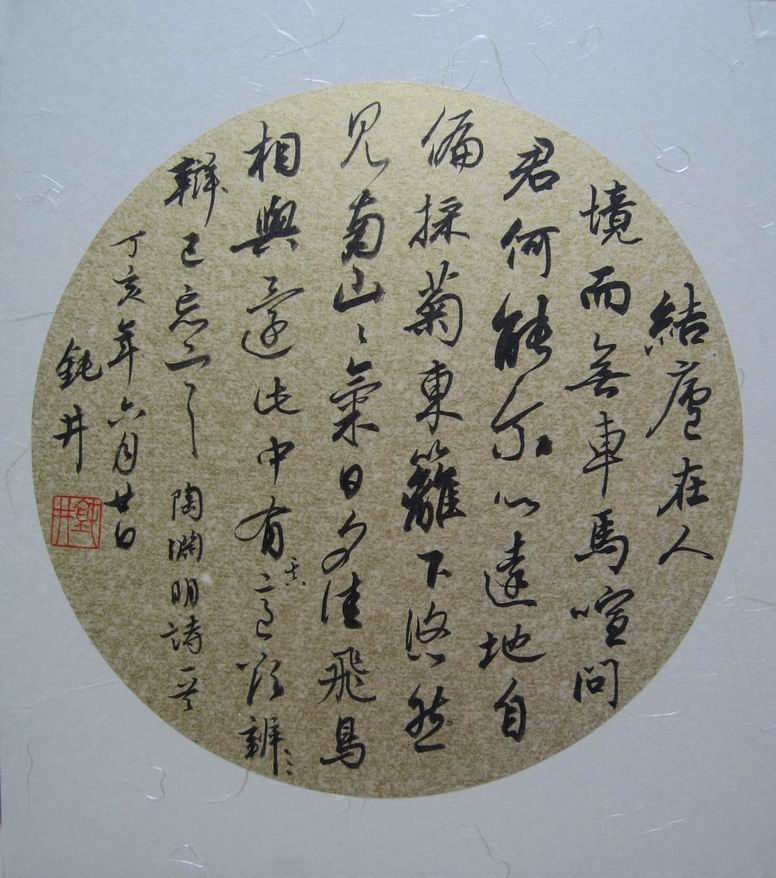 結廬在人
境而無車馬喧問
君何能尔心遠地自
偏採菊東籬下悠然
見南山〻氣日夕佳飛鳥
相與還此中有真意欲辨
辨已忘言 陶淵明詩一首
丁亥年六月廿日
鈍井
鈍井